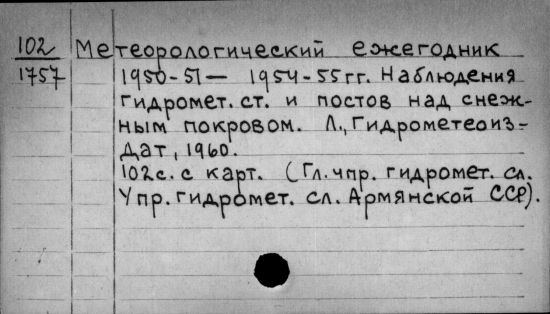 102 Метеорологический ежегодник
1757 1950-51 — 1954-55 гг. Наблюдения
гидромет. ст. и постов над снеж-
ным покровом. Л., Гидрометеоиз-
дат, 1960.
102 с. с карт. (Гл. упр. гидромет. сл.
Упр. гидромет. сл. Армянской ССР).